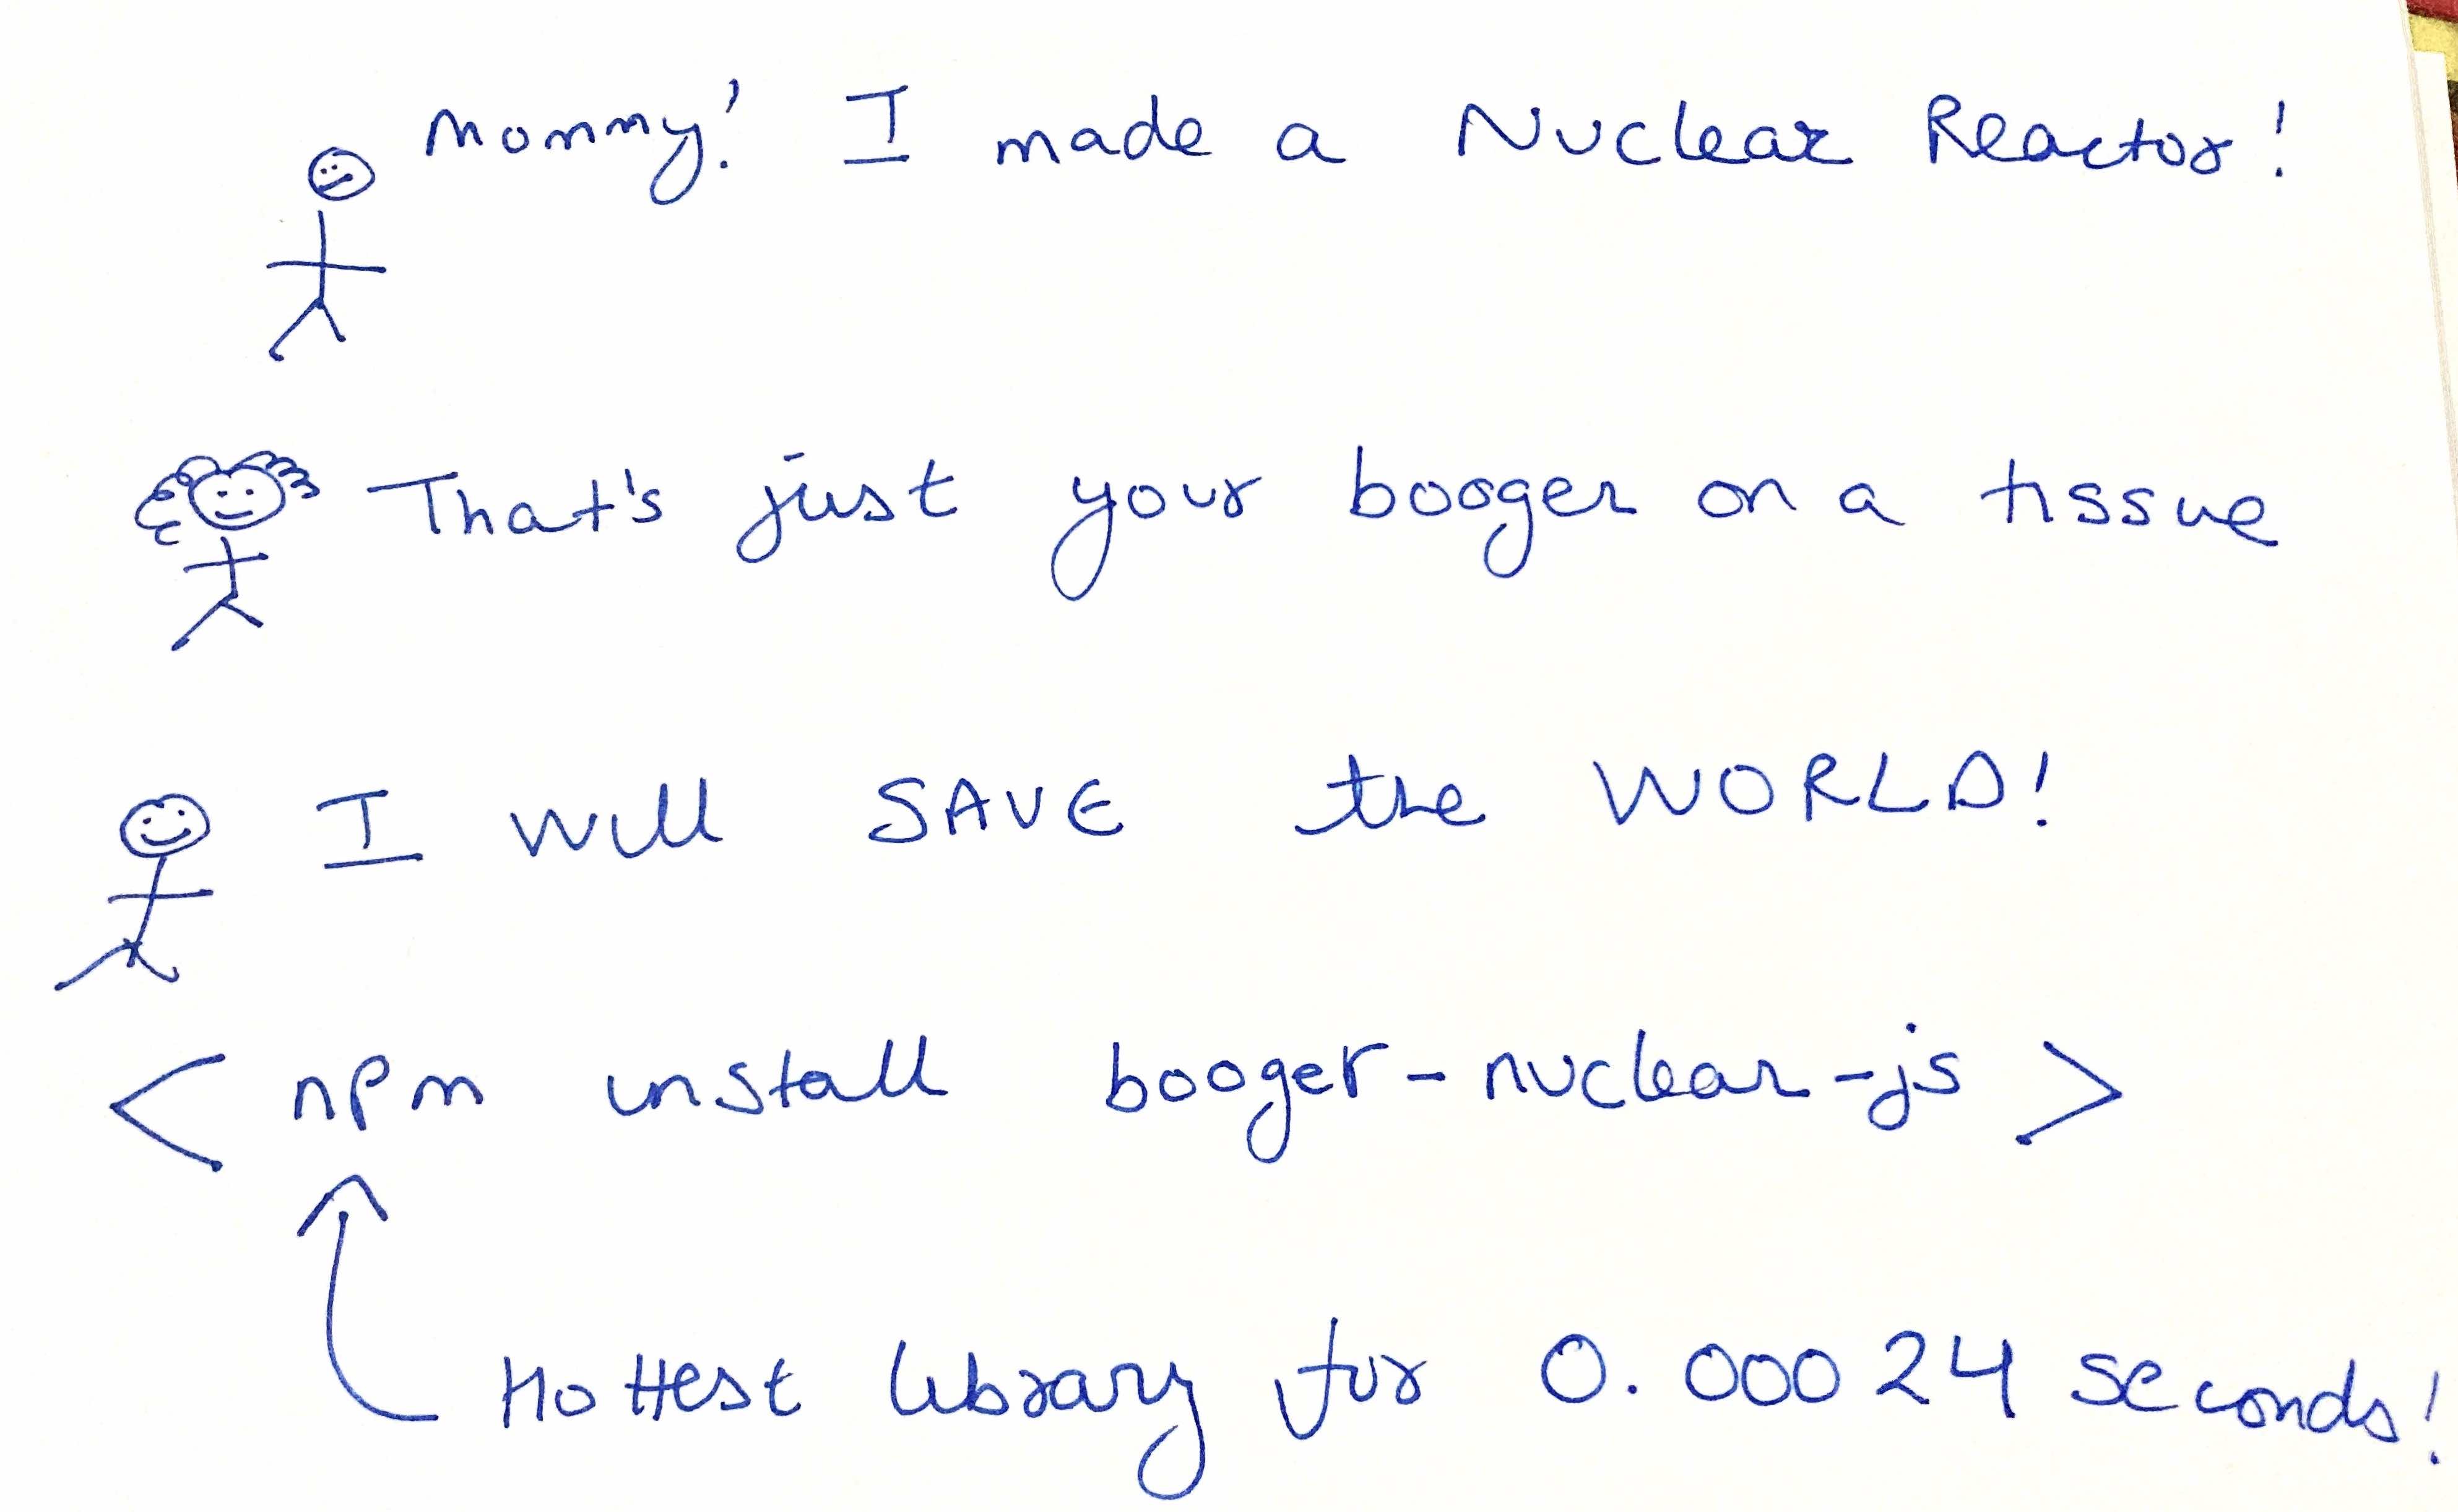 Mommy! I made a Nuclear Reactor!
That's just your booger on a tissue
I will SAVE the WORLD!
< npm install booger-nuclear-js >
Hottest library for 0.00024 seconds!